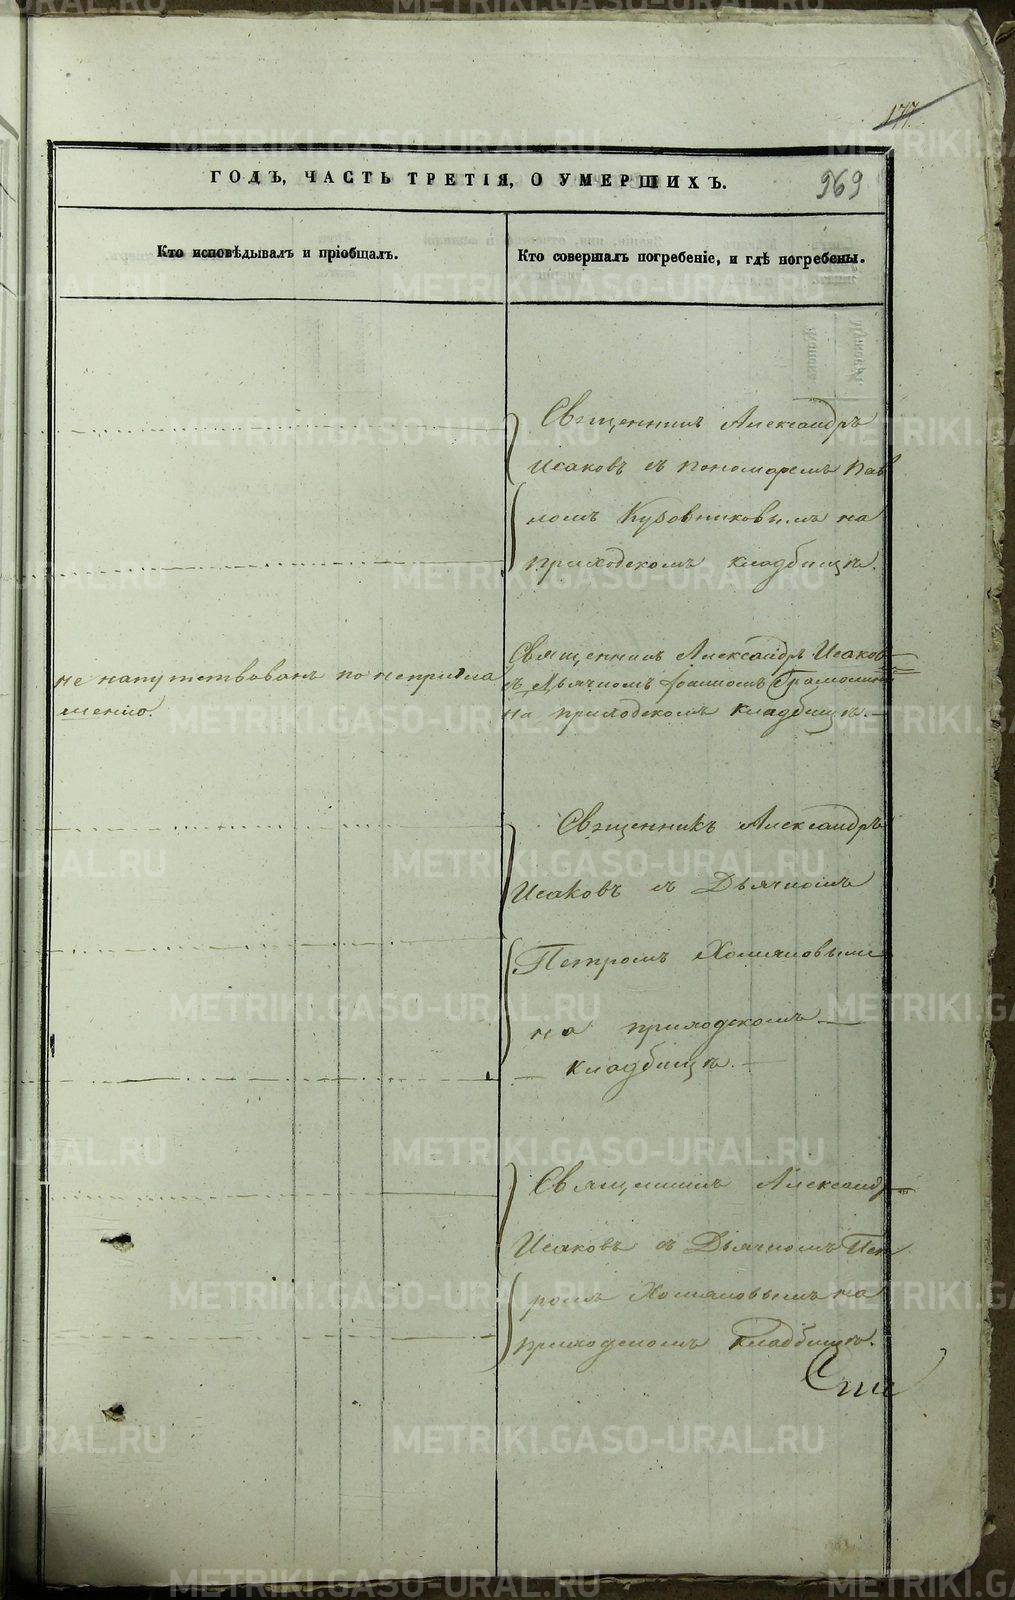 177
ГОДЪ, ЧАСТЬ ТРЕТІЯ, О УМЕРШИХЪ.
969
Кто исповѣдывалъ и пріобщалъ.
Кто совершалъ погребеніе, и гдѣ погребены.
Священникъ Александръ
Исаковъ съ пономаремъ Пав
ломъ Кубовниковымъ на
приходскомъ кладбищѣ.
не напутствованъ по непригла
шенію.
Священникъ Александръ Исаковъ
съ Дьячкомъ Іоанномъ
на приходскомъ кладбищѣ.
Священникъ Александръ
Исаковъ съ Дьячкомъ
Петромъ Хомяковымъ
на приходскомъ
кладбищѣ.
Священникъ Александръ
Исаковъ съ Дьячкомъ Пет
ромъ Хомяковымъ на
приходскомъ кладбищѣ.
METRIKI.GASO-URAL.RU